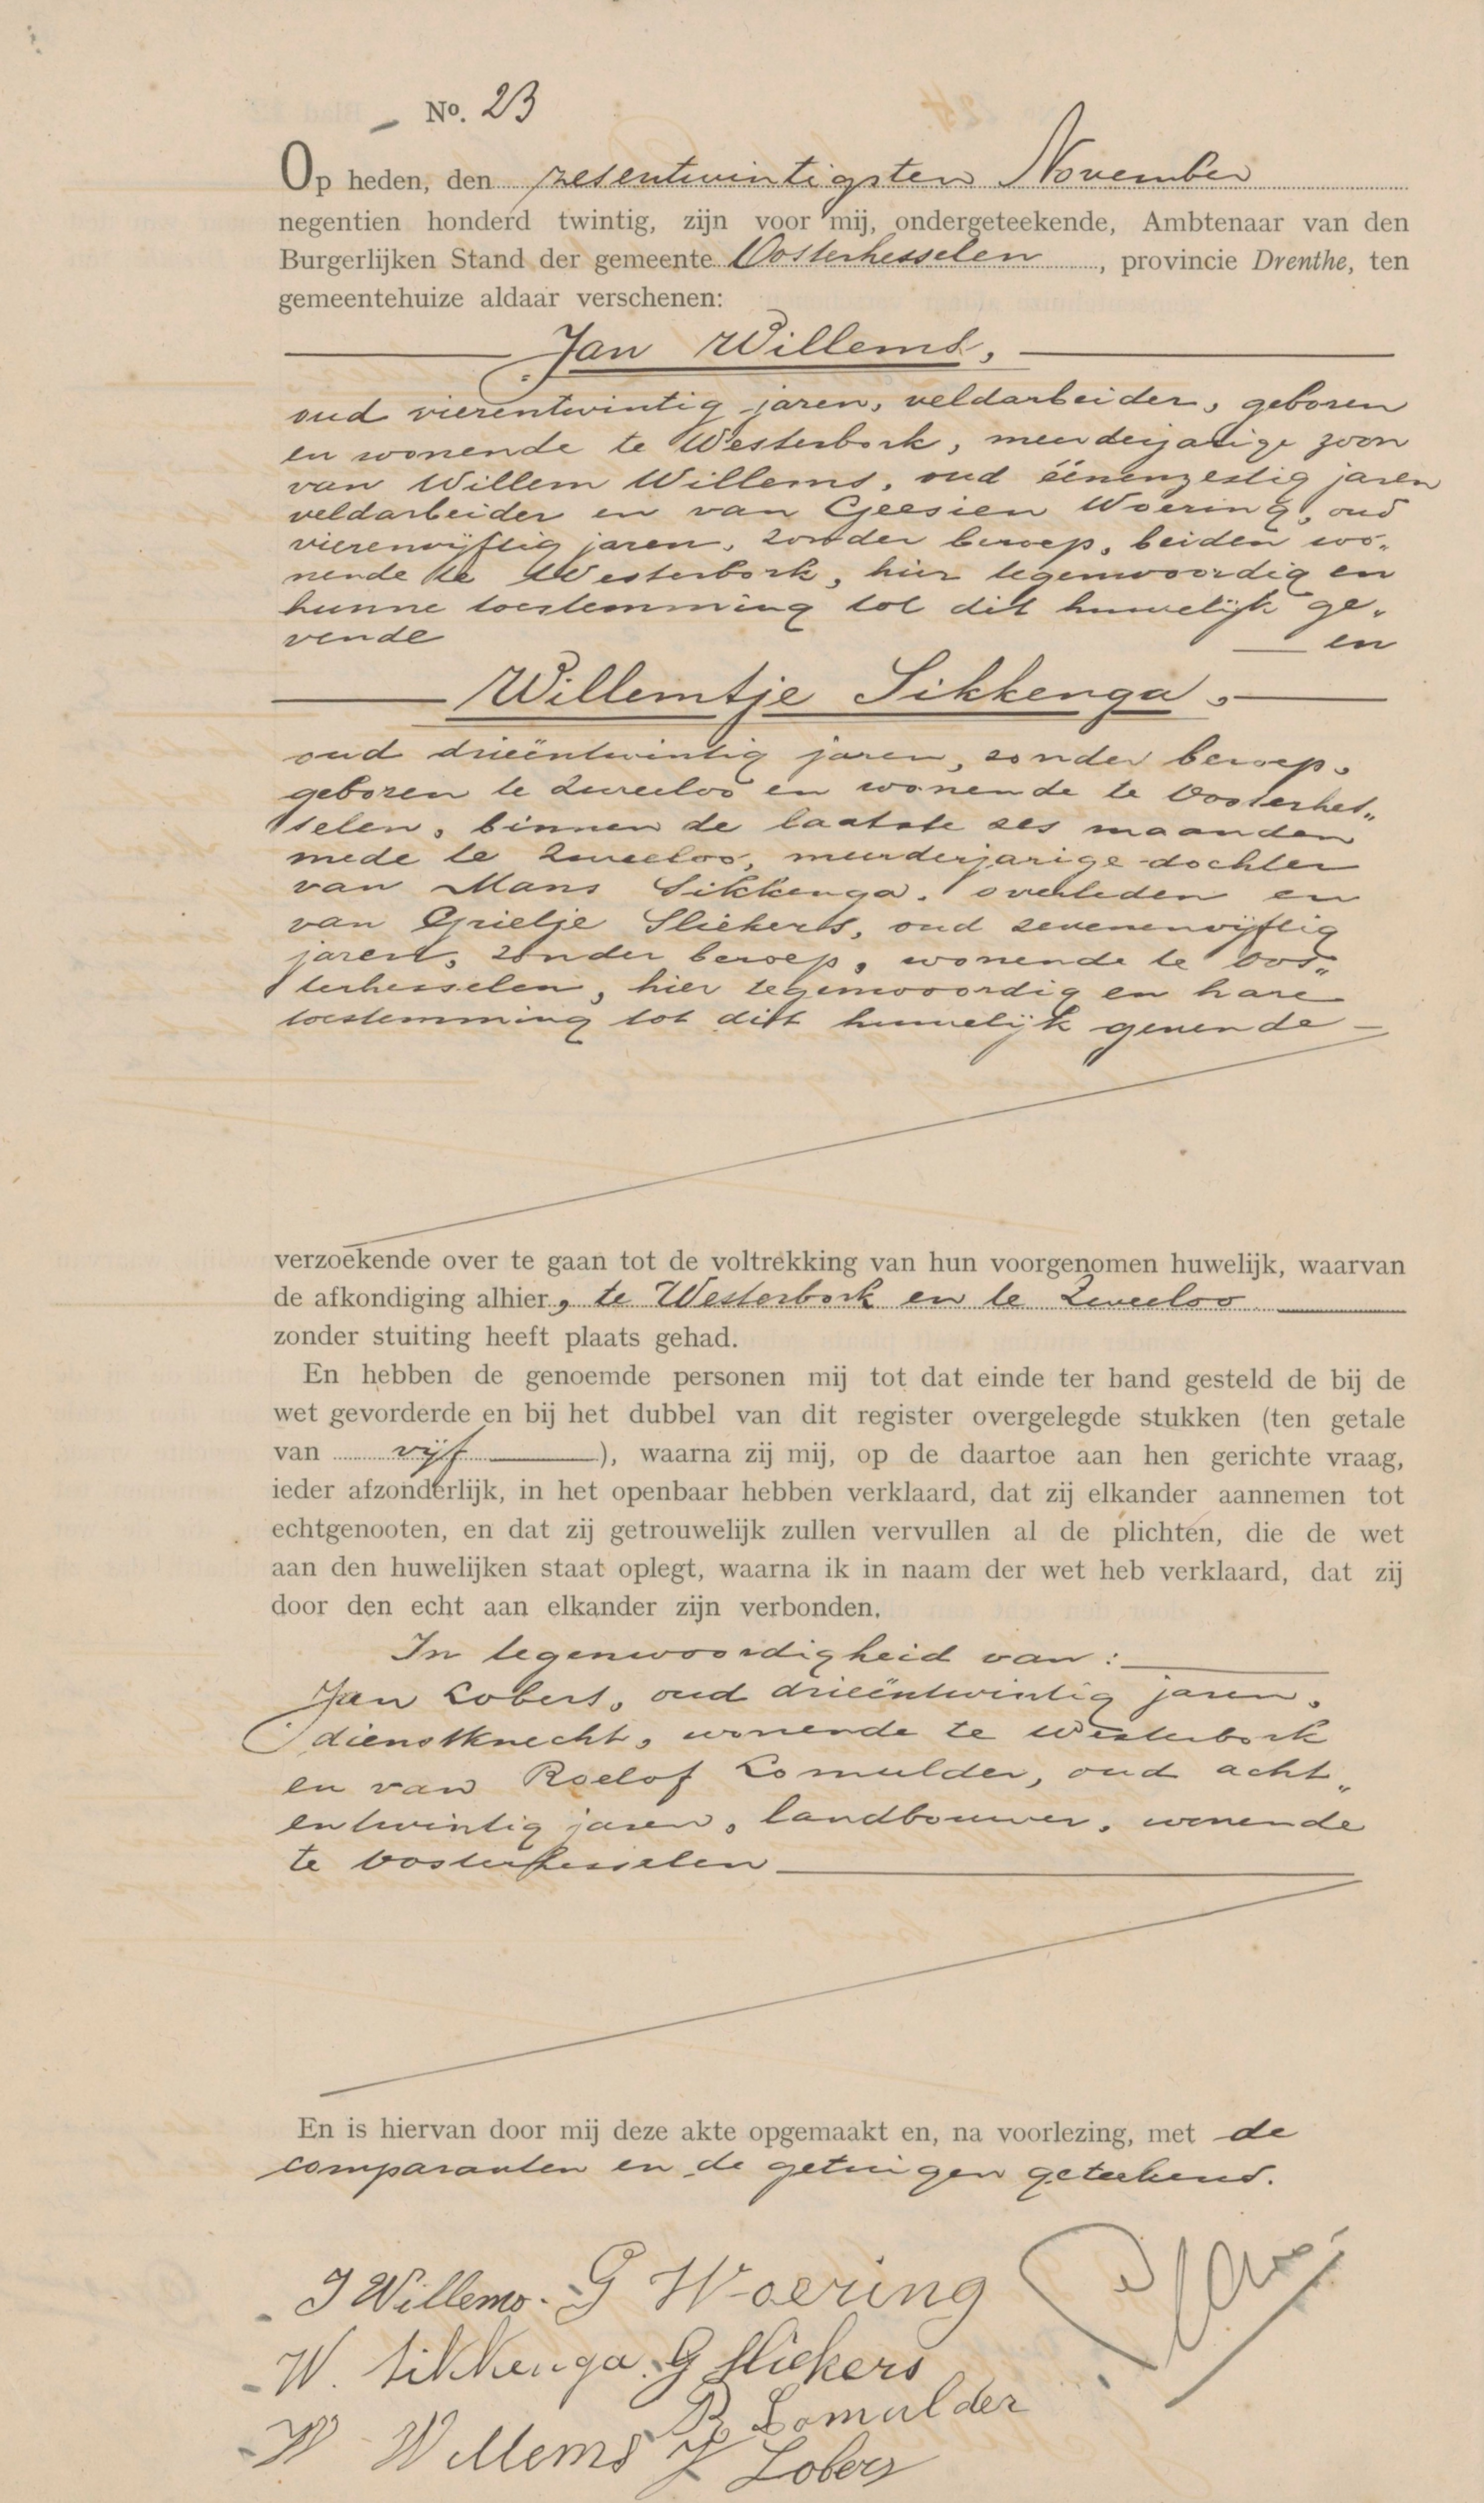 No. 23
Op heden, den zesentwintigsten November
negentien honderd twintig, zijn voor mij, ondergeteekende, Ambtenaar van den
Burgerlijken Stand der gemeente Oosterhesselen, provincie Drenthe, ten
gemeentehuize aldaar verschenen:
Jan Willems,
oud vierentwintig jaren, veldarbeider, geboren
en wonende te Westerbork, meerderjarige zoon
van Willem Willems, oud éénenzestig jaren
veldarbeider en van Geesien Woering, oud
vierenvijftig jaren, zonder beroep, beiden wo„
nende te Westerbork, hier tegenwoordig en
hunne toestemming tot dit huwelijk ge„
vende en
Willemtje Sikkenga,
oud drieëntwintig jaren, zonder beroep,
geboren te Zweeloo en wonende te Oosterhes„
selen, binnen de laatste zes maanden
mede te Zweeloo, meerderjarige dochter
van Mans Sikkenga, overleden en
van Grietje Sliekers, oud zevenenvijftig
jaren, zonder beroep, wonende te Oos„
terhesselen, hier tegenwoordig en hare
toestemming tot dit huwelijk gevende
verzoekende over te gaan tot de voltrekking van hun voorgenomen huwelijk, waarvan
de afkondiging alhier, te Westerbork en te Zweeloo
zonder stuiting heeft plaats gehad.
En hebben de genoemde personen mij tot dat einde ter hand gesteld de bij de
wet gevorderde en bij het dubbel van dit register overgelegde stukken (ten getale
van vijf), waarna zij mij, op de daartoe aan hen gerichte vraag,
ieder afzonderlijk, in het openbaar hebben verklaard, dat zij elkander aannemen tot
echtgenooten, en dat zij getrouwelijk zullen vervullen al de plichten, die de wet
aan den huwelijken staat oplegt, waarna ik in naam der wet heb verklaard, dat zij
door den echt aan elkander zijn verbonden.
In tegenwoordigheid van:
Jan Lobers, oud drieëntwintig jaren,
dienstknecht, wonende te Westerbork
en van Roelof Lomulder, oud acht„
entwintig jaren, landbouwer, wonende
te Oosterhesselen
En is hiervan door mij deze akte opgemaakt en, na voorlezing, met de
comparanten en de getuigen geteekend.
J Willems. G Woering
W. Sikkenga. G Sliekers
R Lomulder
W Willems J Lobers